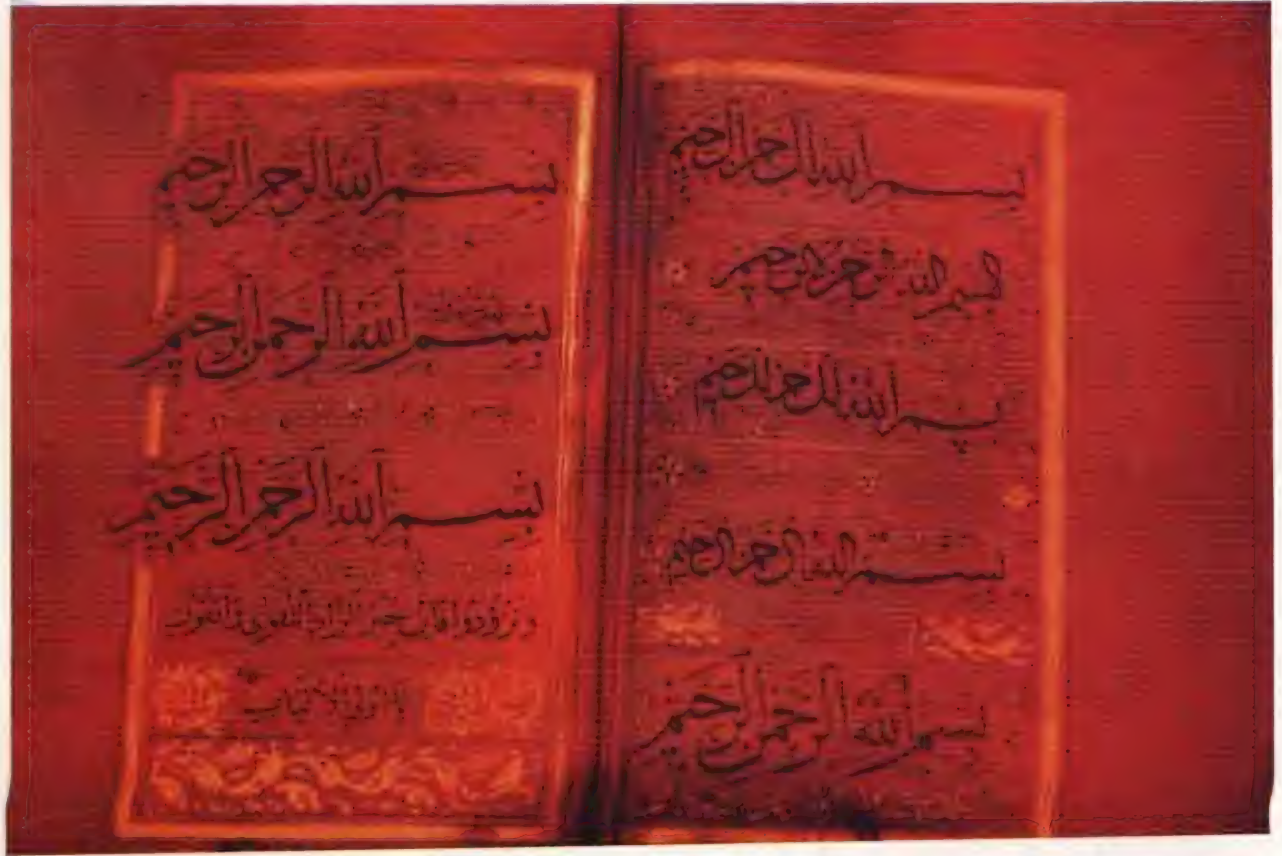 بسم الله الرحمن الرحيم
بسم الله الرحمن الرحيم
بسم الله الرحمن الرحيم
بسم الله الرحمن الرحيم
بسم الله الرحمن الرحيم
بسم الله الرحمن الرحيم
بسم الله الرحمن الرحيم
بسم الله الرحمن الرحيم
وتزودوا فإن خير الزاد التقوى واتقون
يا أولي الألباب